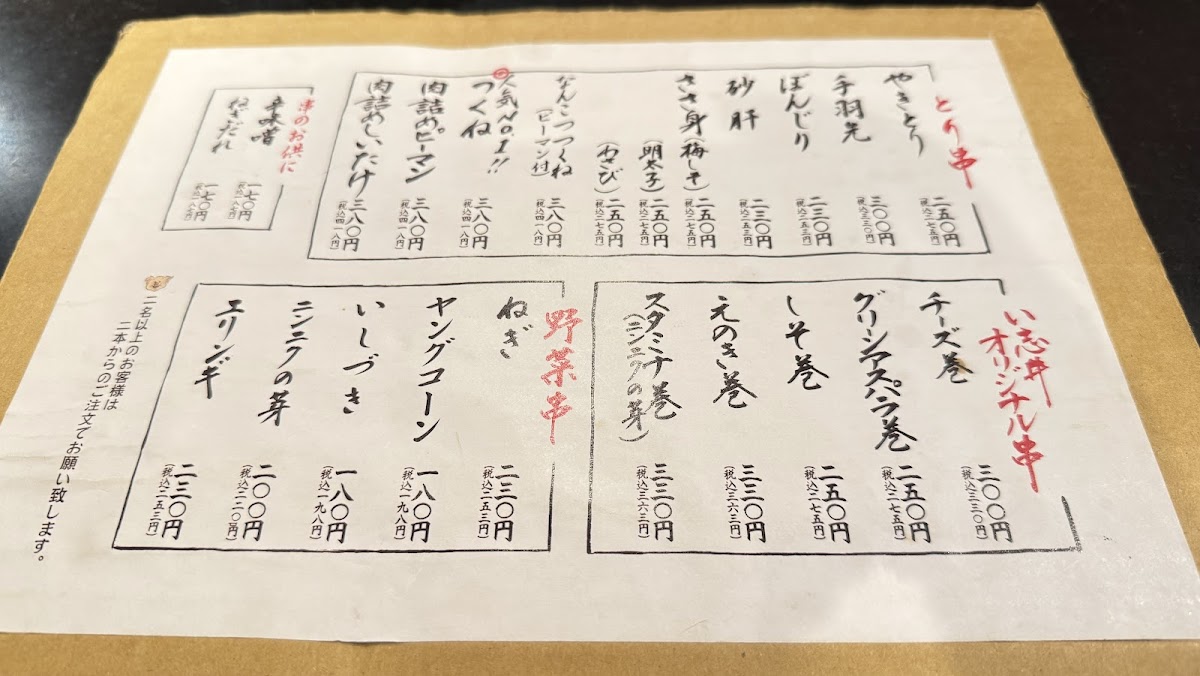 とり串
やきとり
二五〇円
(税込二七五円)
手羽先
三〇〇円
(税込三三〇円)
ぼんじり
二三〇円
(税込二五三円)
砂肝
二三〇円
(税込二五三円)
ささ身(梅しそ)
二五〇円
(税込二七五円)
(明太子)
二五〇円
(税込二七五円)
(わさび)
二五〇円
(税込二七五円)
なんこつつくね
(ピーマン付)
三八〇円
(税込四一八円)
人気No.1!!
つくね
三八〇円
(税込四一八円)
肉詰めピーマン
三八〇円
(税込四一八円)
肉詰めしいたけ
三八〇円
(税込四一八円)
串のお供に
辛味噌
一七〇円
(税込一八七円)
ねぎだれ
一七〇円
(税込一八七円)
い志井
オリジナル串
チーズ巻
三〇〇円
(税込三三〇円)
グリーンアスパラ巻
二五〇円
(税込二七五円)
しそ巻
二五〇円
(税込二七五円)
えのき巻
三三〇円
(税込三六三円)
スタミナ巻
(ニンニクの芽)
三三〇円
(税込三六三円)
野菜串
ねぎ
二三〇円
(税込二五三円)
ヤングコーン
一八〇円
(税込一九八円)
いしづき
一八〇円
(税込一九八円)
ニンニクの芽
二〇〇円
(税込二二〇円)
エリンギ
二三〇円
(税込二五三円)
二名以上のお客様は
二本からのご注文でお願い致します。